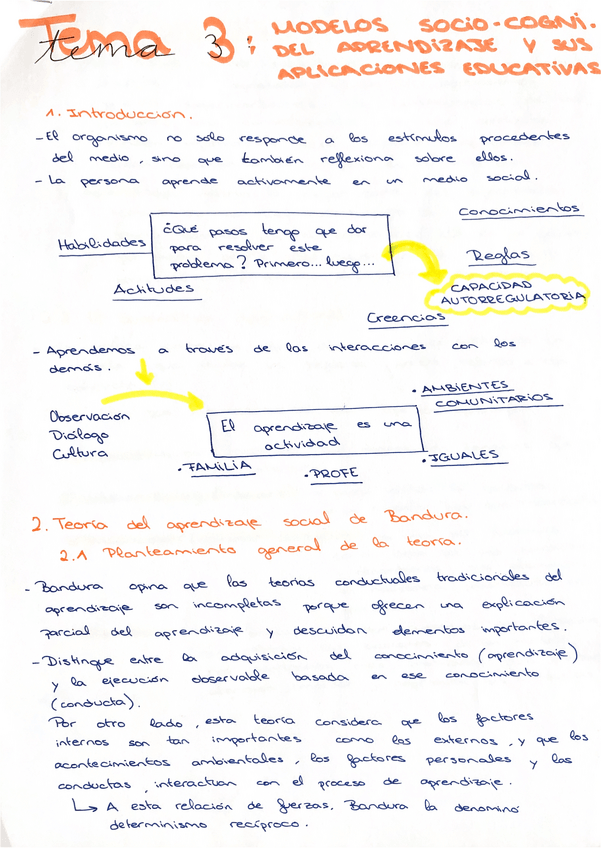 Tema 3: MODELOS SOCIO-COGNI.
tema
DEL APRENDIZAJE Y SUS
APLICACIONES EDUCATIVAS
1. Introducción.
- El organismo no sólo responde a los estímulos procedentes
del medio, sino que también reflexiona sobre ellos.
- La persona aprende activamente en un medio social.
Conocimientos
Habilidades
¿Qué pasos tengo que dar
para resolver este
problema? Primero... luego...
Reglas
Actitudes
CAPACIDAD
AUTORREGULATORIA
Creencias
- Aprendemos a través de las interacciones con los
demás.
Observación
Diálogo
Cultura
El aprendizaje es una
actividad
· AMBIENTES
COMUNITARIOS
· FAMILIA
· PROFE
· IGUALES
2. Teoría del aprendizaje social de Bandura.
2.1 Planteamiento general de la teoría.
- Bandura opina que las teorías conductuales tradicionales del
aprendizaje son incompletas porque ofrecen una explicación
parcial del aprendizaje y descuidan elementos importantes.
- Distingue entre la adquisición del conocimiento (aprendizaje)
y la ejecución observable basada en ese conocimiento
(conducta).
Por otro lado, esta teoría considera que los factores
internos son tan importantes como los externos, y que los
acontecimientos ambientales, los factores personales y las
conductas, interactúan con el proceso de aprendizaje.
↳ A esta relación de fuerzas, Bandura la denominó
determinismo recíproco.